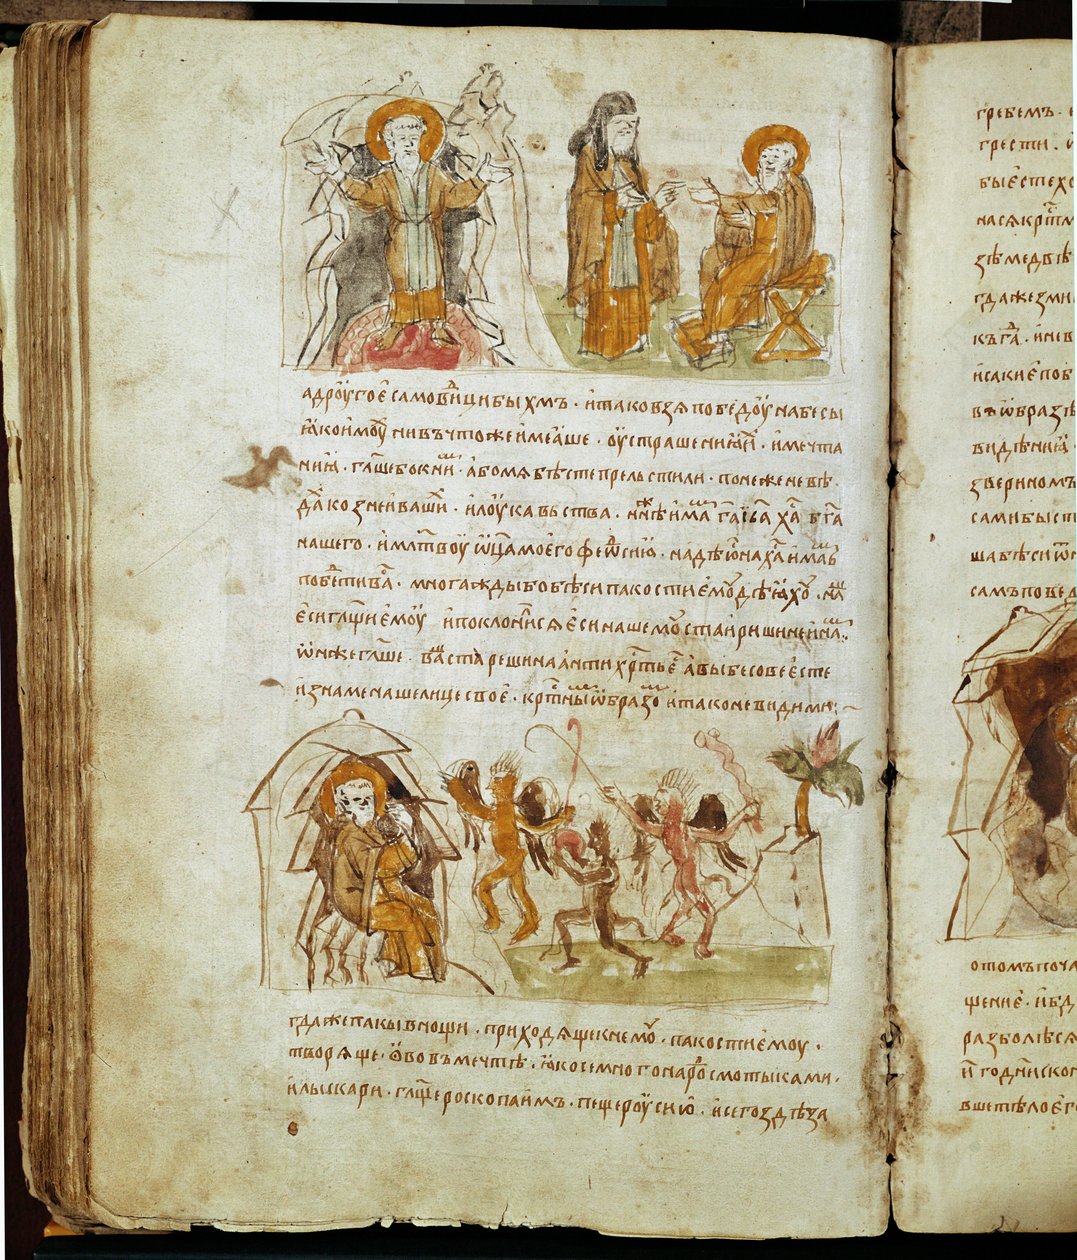 а дроугое самовидци быхмъ · и тако взя победоу на бесы
ꙗко и моухи ни въ что же имеаше · оустрашениꙗ и · и мечта
ниꙗ · гл҃аше бо к ним · аще бо мя бѣсте прельстили · понеже не вѣ
дах кознеи ваших · и лоукавьства · нн҃ѣ имам г҃а іс҃а х҃а б҃га
нашего · и мл҃твоу ѡц҃а моего феѡдосиꙗ · надѣюся на х҃а имам
победити вас · многажды бо бѣси пакости емоу дѣꙗхоу ·
еси гл҃щие емоу и поклонился еси нашемоу стареишинѣ и нам
ѡн же гл҃ше · ваш старешина антихрⷭ҇тъ е҆ⷭ҇ а вы бесове есте
и знаменаше лице свое · крⷭ҇тным ѡбразом и тако невидими
гда же пакы в нощи · приходяще к немоу · пакости емоу ·
творяще · ѡво въ мечтѣ · ꙗко се много народ с мотыками ·
и лыскари · гл҃ще роскопаимъ · пещероу сию · и сего здѣ за
гребемъ ·
грести ·
бы есте хр
нася крⷭ҇тм
зѣ медвѣ
гда же зми
къ г
исакие поб
вѡ ѡбразѣ
видѣниꙗ
звериномъ
сами быст
ша бѣси ѡ
самъ побед
отомъ поча
щение · и бд
разболѣся
и годинскон
вше тѣло ег